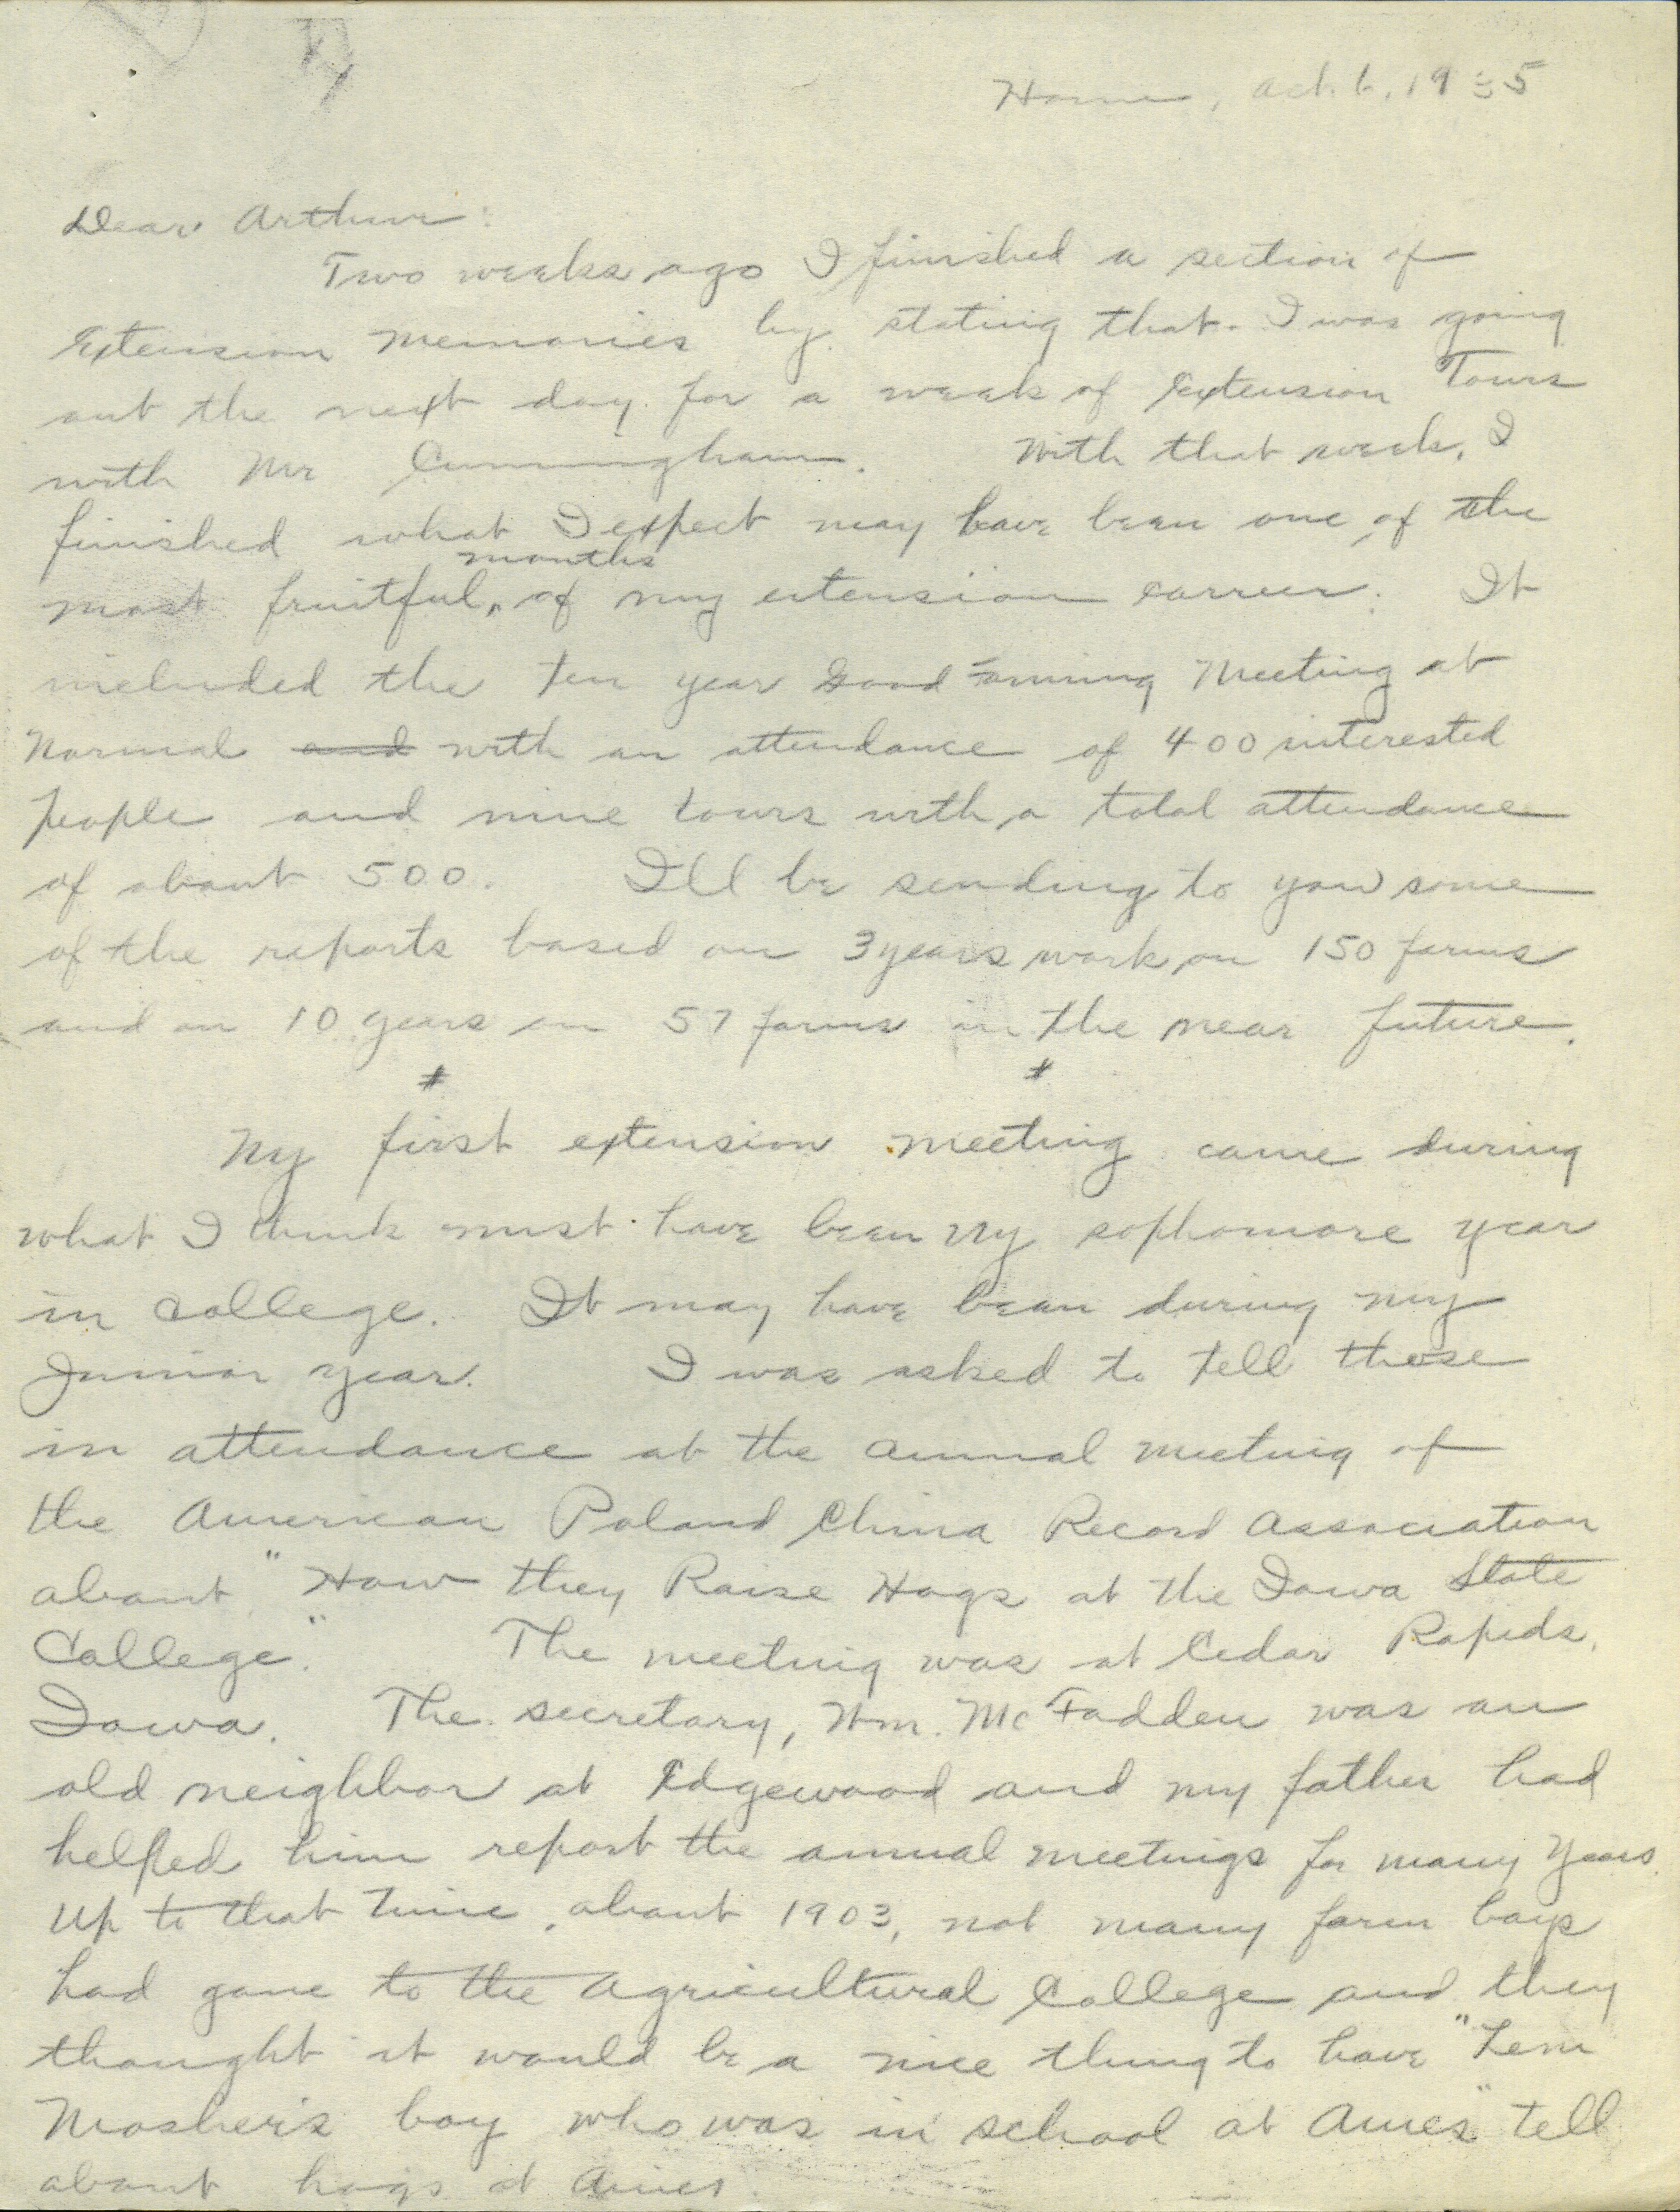 Home, Oct. 6, 1935
Dear Arthur:
Two weeks ago I finished a section of
Extension Memories by stating that I was going
out the next day for a week of Extension Tours
with Mr Cunningham. With that week, I
finished what I expect may have been one of the
months
most fruitful, of my extension carreer. It
included the ten year Good Farming Meeting at
Normal and with an attendance of 400 interested
people and nine tours with a total attendance
of about 500. I'll be sending to you some
of the reports based on 3 years work on 150 farms
and on 10 years on 57 farms in the near future.
# #
My first extension meeting came during
what I think must have been my sophomore year
in college. It may have been during my
Junior year. I was asked to tell those
in attendance at the annual meeting of
the American Poland China Record Association
about "How they Raise Hogs at the Iowa State
College." The meeting was at Cedar Rapids,
Iowa. The secretary, Wm. McFadden was an
old neighbor at Edgewood and my father had
helped him report the annual meetings for many years.
Up to that time, about 1903, not many farm boys
had gone to the Agricultural College and they
thought it would be a nice thing to have "Lem
Mosher's boy who was in school at Ames" tell
about hogs at Ames.